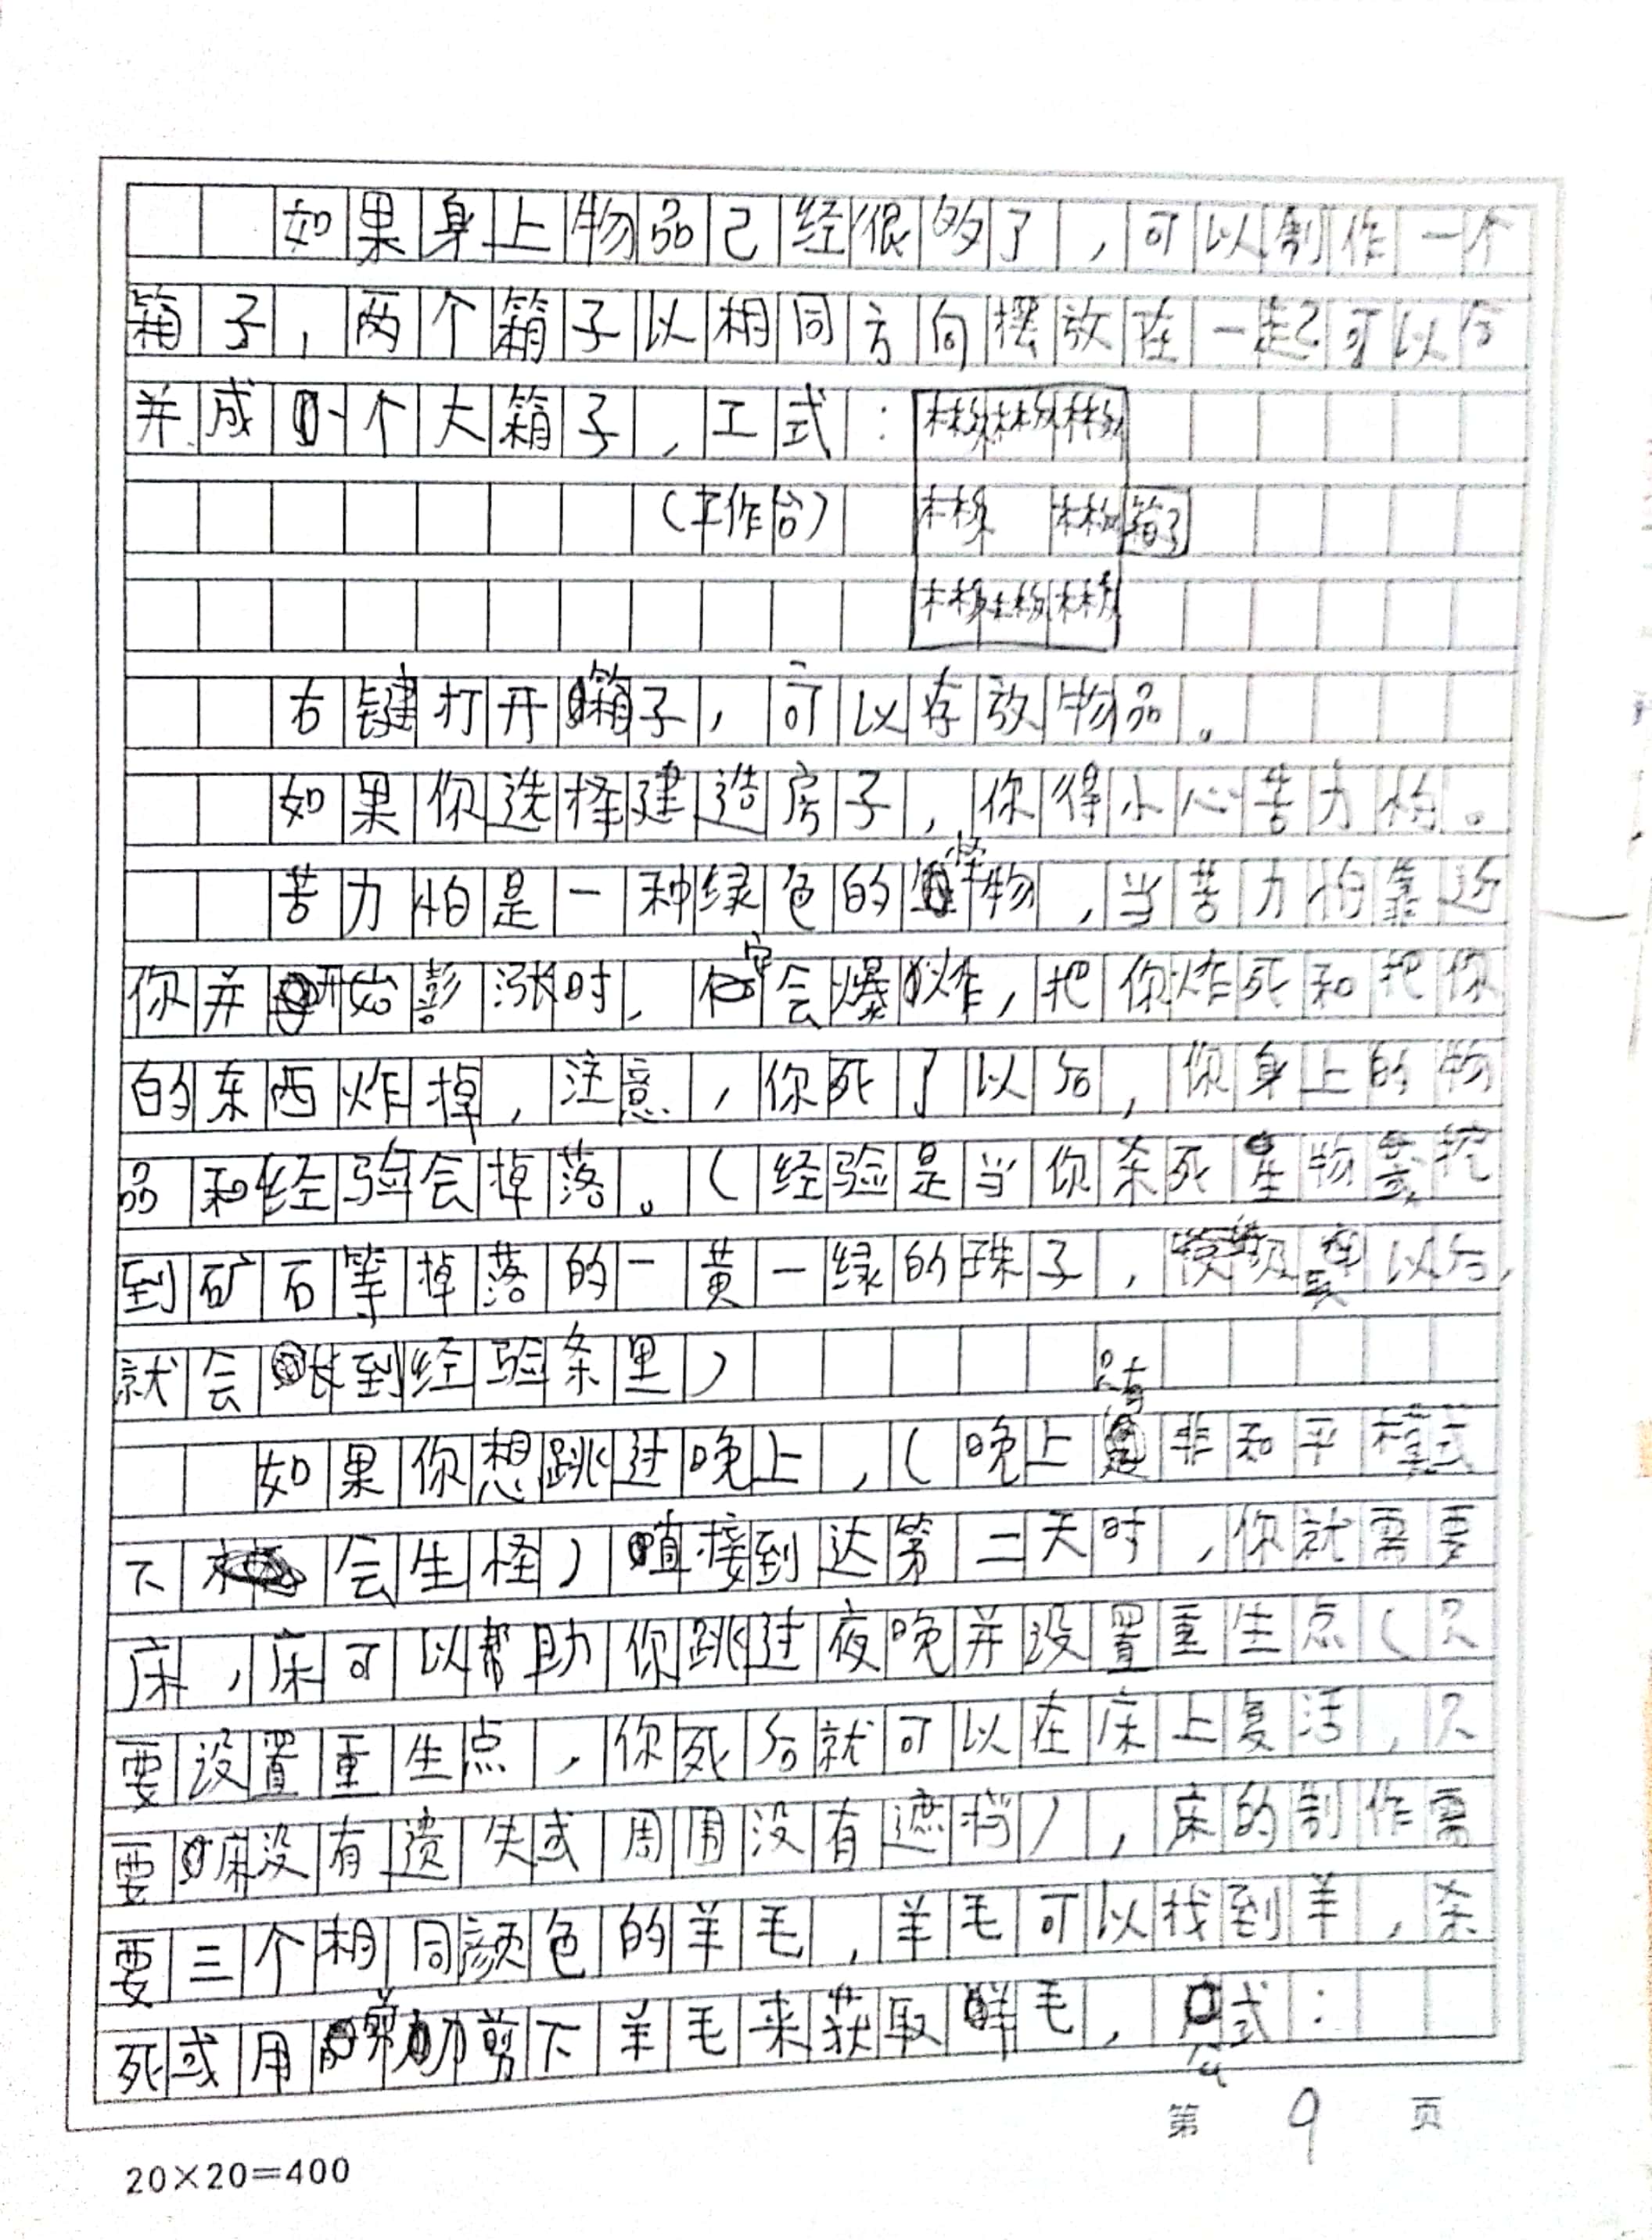 如果身上物品已经很多了，可以制作一个
箱子，两个箱子以相同方向摆放在一起可以合
并成一个大箱子，工式：
（工作台） 箱子
右键打开箱子，可以存放物品。
如果你选择建造房子，你得小心苦力怕。
苦力怕是一种绿色的怪物，当苦力怕靠近
你并开始彭涨时，它会爆炸，把你炸死和把你
的东西炸掉，注意，你死了以后，你身上的物
品和经验会掉落。（经验是当你杀死生物或挖
到矿石等掉落的一黄一绿的珠子，以后，
就会长到经验条里）
如果你想跳过晚上，（晚上时非和平模式
下会生怪）直接到达第二天时，你就需要
床，床可以帮助你跳过夜晚并设置重生点（只
要设置重生点，你死后就可以在床上复活，只
要床没有遗失或周围没有遮挡），床的制作需
要三个相同颜色的羊毛，羊毛可以找到羊，杀
死或用剪刀剪下羊毛来获取羊毛，公式：
第 9 页
20×20=400